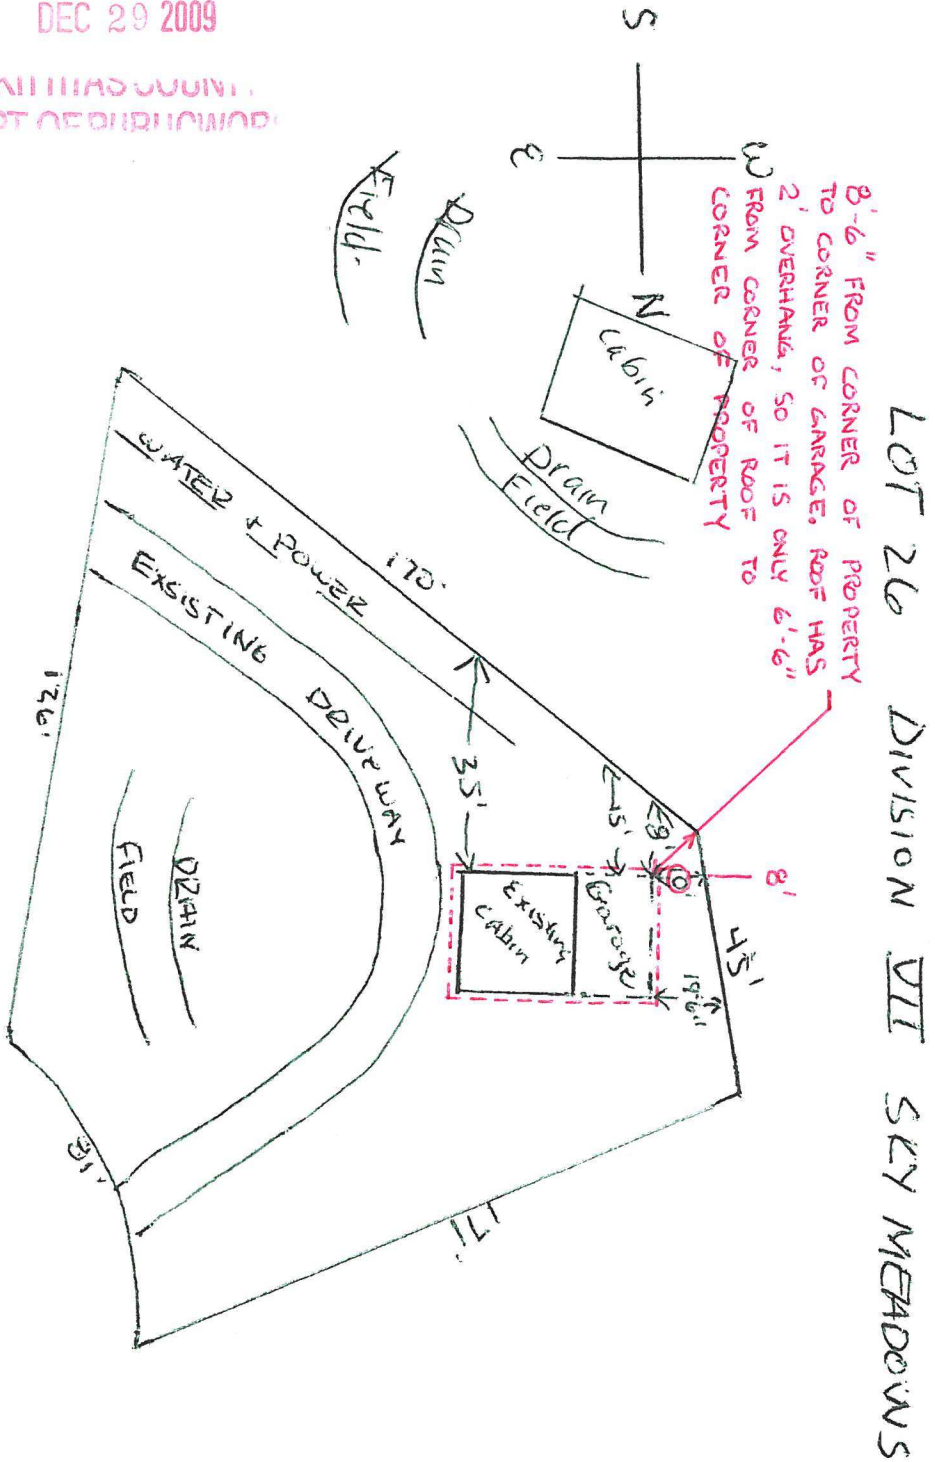 DEC 29 2009
LOT 26 DIVISION VII SKY MEADOWS
S
W
E
N
8'-6" FROM CORNER OF PROPERTY
TO CORNER OF GARAGE. ROOF HAS
2' OVERHANG, SO IT IS ONLY 6'-6"
FROM CORNER OF ROOF TO
CORNER OF PROPERTY
Cabin
Drain
Field
Drain
Field.
WATER + POWER
170'
EXSISTING DRIVEWAY
35'
15'
8'
10'
8'
45'
19'6"
Garage
Existing
cabin
DRAIN
FIELD
171'